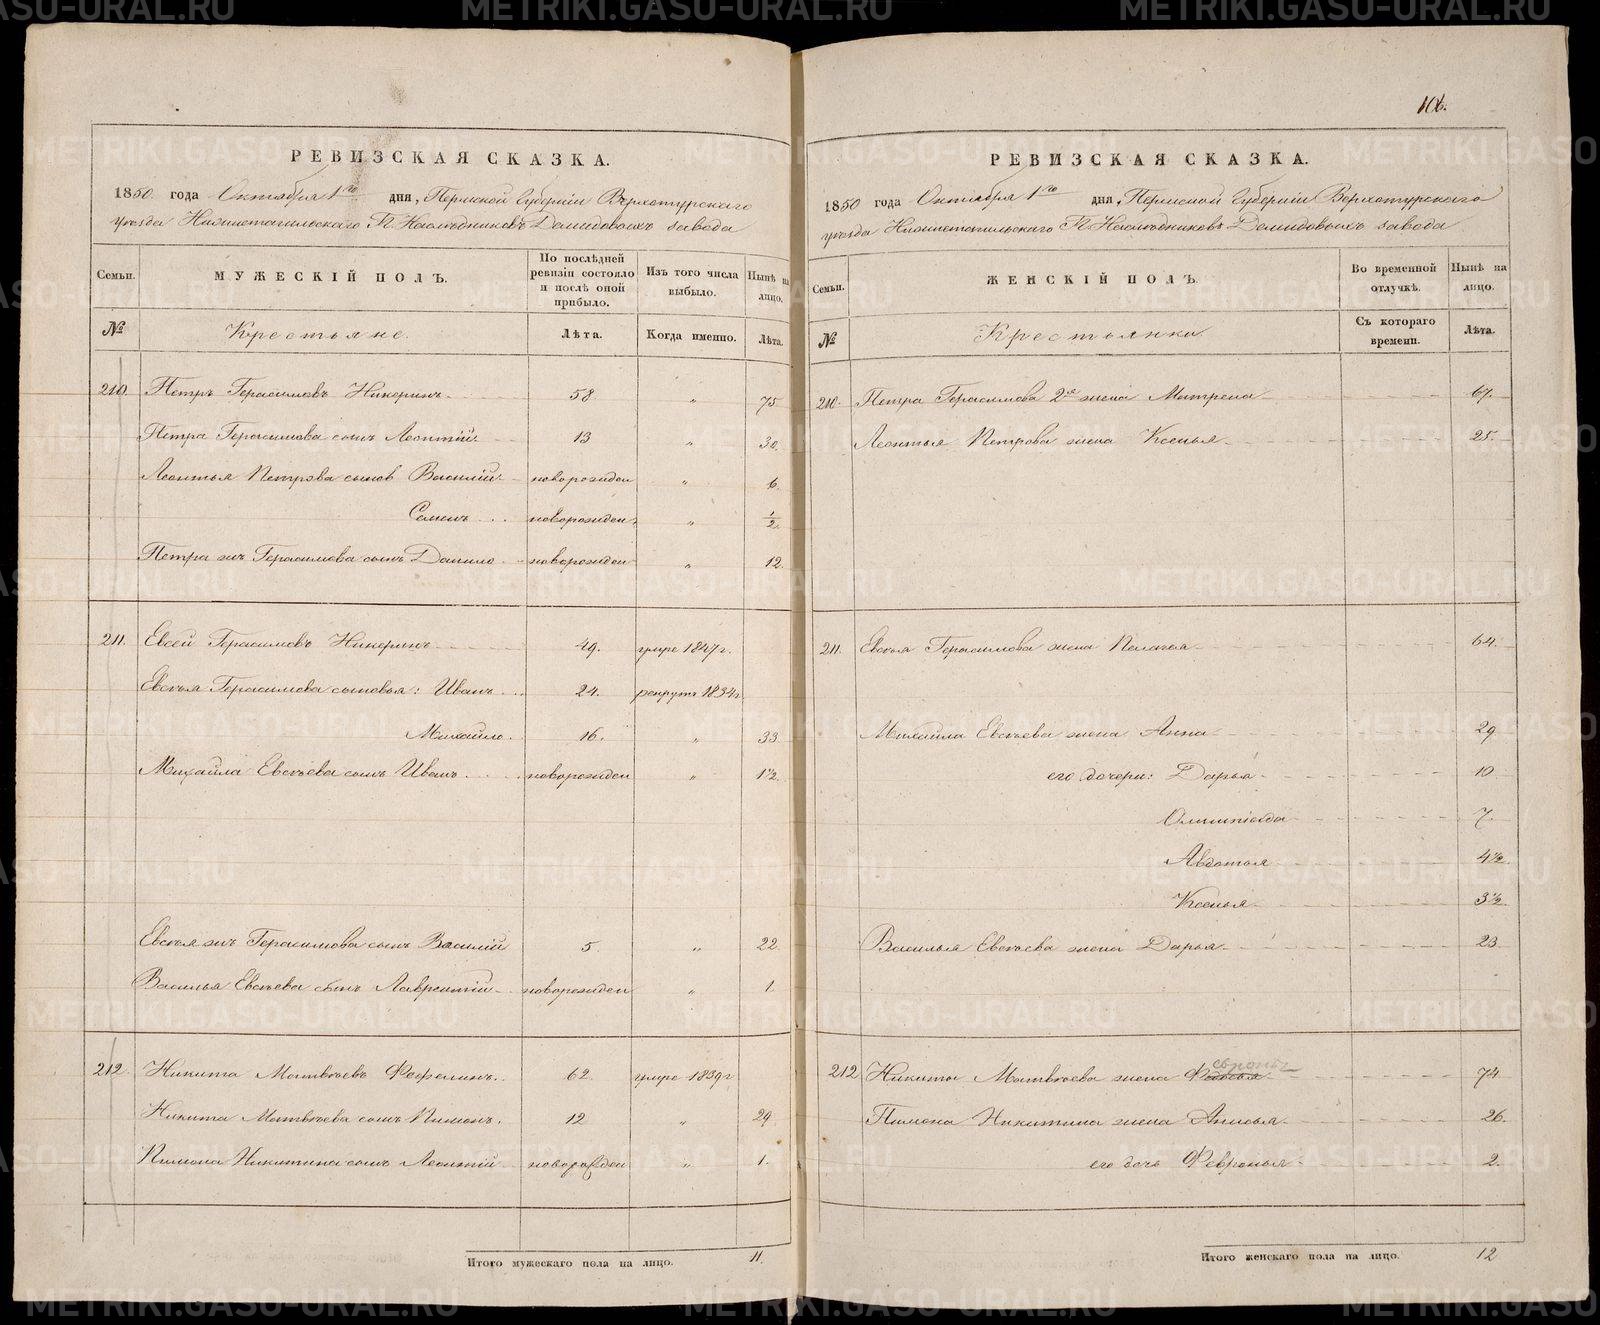 106.
РЕВИЗСКАЯ СКАЗКА.
1850 года Октября 1го дня, Пермской Губернiи Верхотурскаго
уѣзда Нижнетагильскаго Г.г. Наслѣдниковъ Демидовыхъ завода
Семьи. МУЖЕСКІЙ ПОЛЪ. По послѣдней ревизіи состояло и послѣ оной прибыло. Изъ того числа выбыло. Нынѣ на лицо.
№ Крестьяне. Лѣта. Когда именно. Лѣта.
210. Петръ Герасимовъ Никеринъ 58 " 75
Петра Герасимова сынъ Леонтій 13 " 30.
Леонтья Петрова сынов Василій новорожден " 6.
Семенъ новорожден. " 1/2.
Петра жъ Герасимова сынъ Данило новорожден " 12.
211. Евсей Герасимовъ Никеринъ 49. умре 1847 г.
Евсѣя Герасимова сыновья: Иванъ 24. рекрутъ 1834 г.
Михайло. 16. " 33
Михайла Евсѣева сынъ Иванъ новорожден " 1 1/2.
Евсѣя жъ Герасимова сынъ Василій 5. " 22.
Василья Евсѣева сынъ Лаврентій новорожден " 1.
212. Никита Матвѣевъ Фефелинъ. 62. умре 1839 г
Никита Матвѣева сынъ Пимонъ. 12 " 29.
Пимона Никитина сынъ Леонтій новорожден " 1.
Итого мужескаго пола на лицо. 11.
РЕВИЗСКАЯ СКАЗКА.
1850 года Октября 1го дня, Пермской Губерніи Верхотурскаго
уѣзда Нижнетагильскаго Г.г. Наслѣдниковъ Демидовыхъ завода
Семьи. ЖЕНСКІЙ ПОЛЪ. Во временной отлучкѣ. Нынѣ на лицо.
№ Крестьянки. Съ котораго времени. Лѣта.
210. Петра Герасимова 2я жена Матрена 67.
Леонтья Петрова жена Ксенья 25.
211. Евсѣя Герасимова жена Пелагья 64.
Михайла Евсѣева жена Анна 29
его дочери: Дарья 10
Олимпіяда 7
Авдотья 4 1/2.
Ксенья 3 1/2.
Василья Евсѣева жена Дарья 23
212 Никиты Матвѣева жена 74
Пимона Никитина жена Анисья 26.
его дочь Февронья 2.
Итого женскаго пола на лицо. 12
METRIKI.GASO-URAL.RU